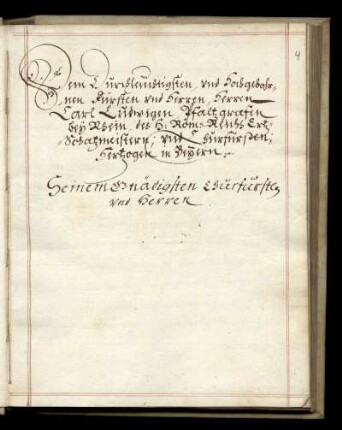 4
Dem Durchleuchtigsten, vnd Hochgebohr-
nen Fürsten vnd Herren, Herren
Carl Ludwigen Pfaltzgrafen
beÿ Rhein, des H: Röm: Reichs Ertz-
Schatzmeistern, vnd Churfürsten,
Hertzogen in Baÿern.
Seinem Gnädigsten Churfürsten
vnd Herren